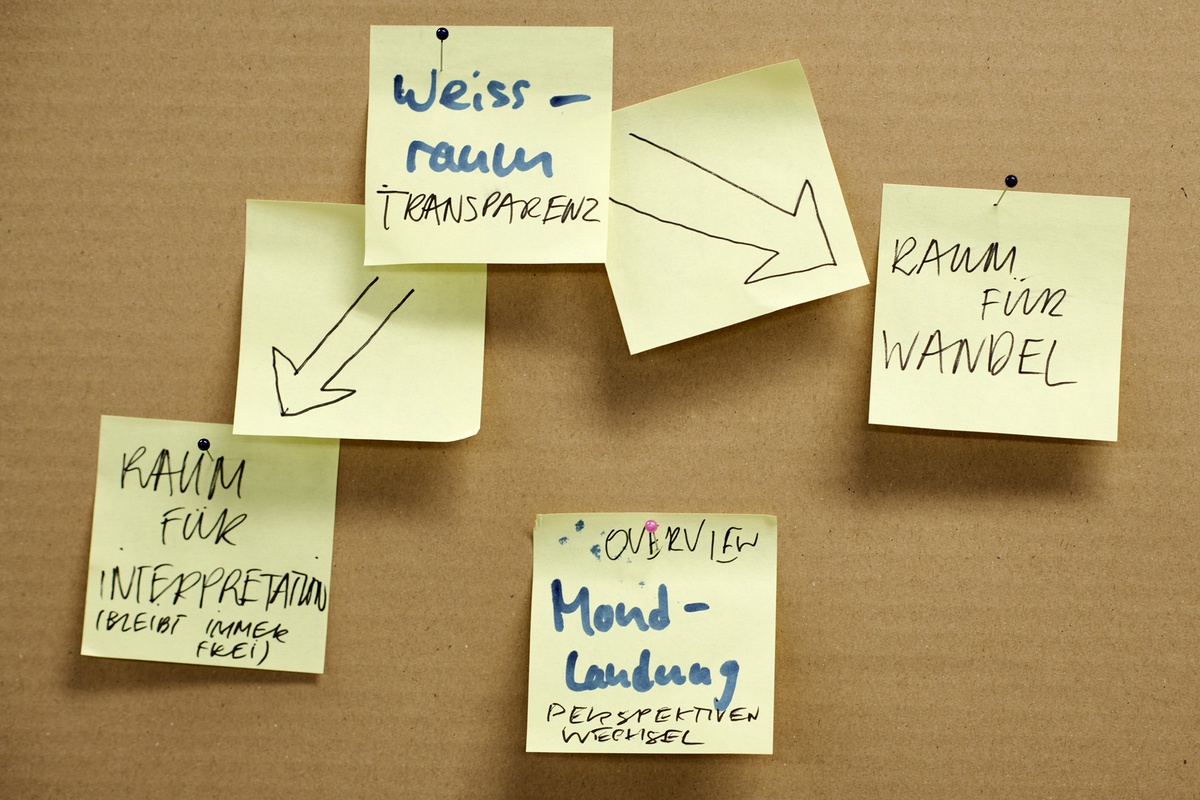 Weiss-
raum
TRANSPARENZ
RAUM
FÜR
WANDEL
RAUM
FÜR
INTERPRETATION
(BLEIBT IMMER
FREI)
OVERVIEW
Mond-
Landung
PERSPEKTIVEN
WECHSEL